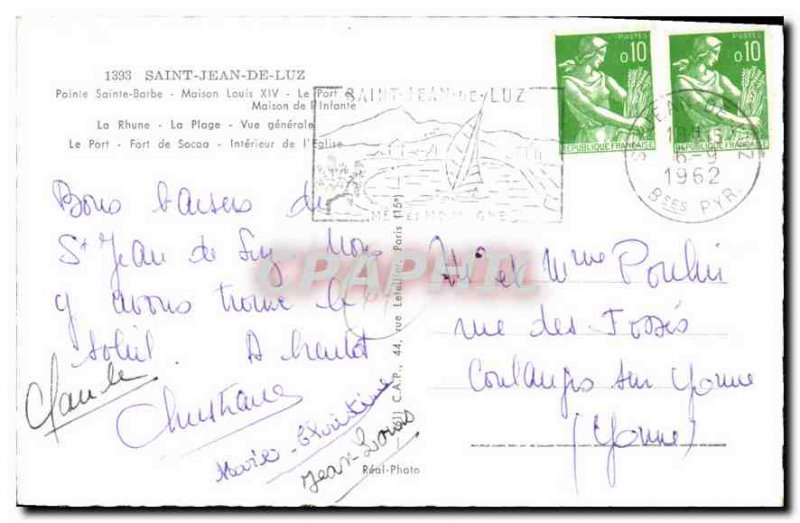 1393 SAINT-JEAN-DE-LUZ
Pointe Sainte-Barbe - Maison Louis XIV - Le Port et
Maison de l'Infante
La Rhune - La Plage - Vue générale
Le Port - Fort de Socoa - Intérieur de l'Église
SAINT-JEAN-DE-LUZ
MER ET MONTAGNE
POSTES
0,10
RÉPUBLIQUE FRANÇAISE
POSTES
0,10
RÉPUBLIQUE FRANÇAISE
ST JEAN DE LUZ
6-9
1962
BSES PYR.
Bons baisers de
St Jean de Luz Nous
y avons trouvé le
soleil. A bientôt
Claude
Christiane
Marie-Christine
Jean-Louis
C.A.P., 44, rue Letellier, Paris (15e)
Réal-Photo
CPAPHIL
Mr et Mme Poulin
rue des Fossés
Coulanges sur Yonne
(Yonne)